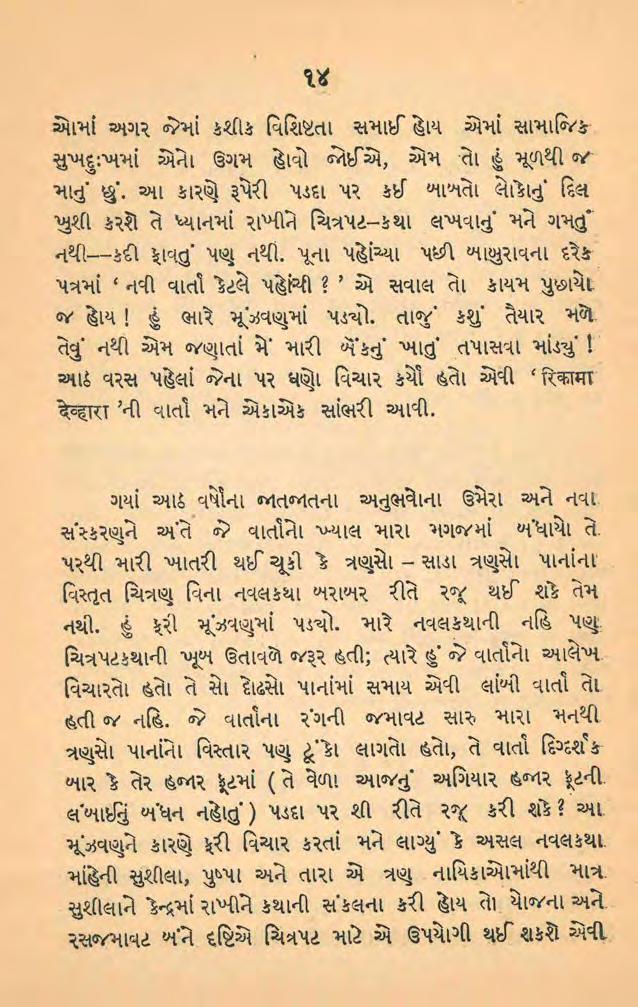 ૧૪
ઓમાં અગર જેમાં કશીક વિશિષ્ટતા સમાઈ હોય એમાં સામાજિક
સુખદુઃખમાં એનો ઉગમ હોવો જોઈએ, એમ તો હું મૂળથી જ
માનું છું. આ કારણે રૂપેરી પડદા પર કઈ બાબતો લોકોનું દિલ
ખુશી કરશે તે ધ્યાનમાં રાખીને ચિત્રપટ–કથા લખવાનું મને ગમતું
નથી––કદી ફાવતું પણ નથી. પૂના પહોંચ્યા પછી બાબુરાવના દરેક
પત્રમાં ‘ નવી વાર્તા કેટલે પહોંચી ? ’ એ સવાલ તો કાયમ પુછાયો
જ હોય ! હું ભારે મૂંઝવણમાં પડ્યો. તાજું કશું તૈયાર મળે
તેવું નથી એમ જણાતાં મેં મારી બૅંકનું ખાતું તપાસવા માંડ્યું !
આઠ વરસ પહેલાં જેના પર ઘણો વિચાર કર્યો હતો એવી ‘ रिकामा
देव्हारा ’ની વાર્તા મને એકાએક સાંભરી આવી.
ગયાં આઠ વર્ષોના જાતજાતના અનુભવોના ઉમેરા અને નવા
સંસ્કરણને અંતે જે વાર્તાનો ખ્યાલ મારા મગજમાં બંધાયો તે
પરથી મારી ખાતરી થઈ ચૂકી કે ત્રણસો – સાડા ત્રણસો પાનાંના
વિસ્તૃત ચિત્રણ વિના નવલકથા બરાબર રીતે રજૂ થઈ શકે તેમ
નથી. હું ફરી મૂંઝવણમાં પડ્યો. મારે નવલકથાની નહિ પણ
ચિત્રપટકથાની ખૂબ ઉતાવળે જરૂર હતી; ત્યારે હું જે વાર્તાનો આલેખ
વિચારતો હતો તે સો દોઢસો પાનાંમાં સમાય એવી લાંબી વાર્તા તો
હતી જ નહિ. જે વાર્તાના રંગની જમાવટ સારુ મારા મનથી
ત્રણસો પાનાંનો વિસ્તાર પણ ટૂંકો લાગતો હતો, તે વાર્તા દિગ્દર્શક
બાર કે તેર હજાર ફૂટમાં ( તે વેળા આજનું અગિયાર હજાર ફૂટની
લંબાઈનું બંધન નહોતું ) પડદા પર શી રીતે રજૂ કરી શકે ? આ
મૂંઝવણને કારણે ફરી વિચાર કરતાં મને લાગ્યું કે અસલ નવલકથા
માંહેની સુશીલા, પુષ્પા અને તારા એ ત્રણ નાયિકાઓમાંથી માત્ર
સુશીલાને કેન્દ્રમાં રાખીને કથાની સંકલના કરી હોય તો યોજના અને
રસજમાવટ બંને દૃષ્ટિએ ચિત્રપટ માટે એ ઉપયોગી થઈ શકશે એવી